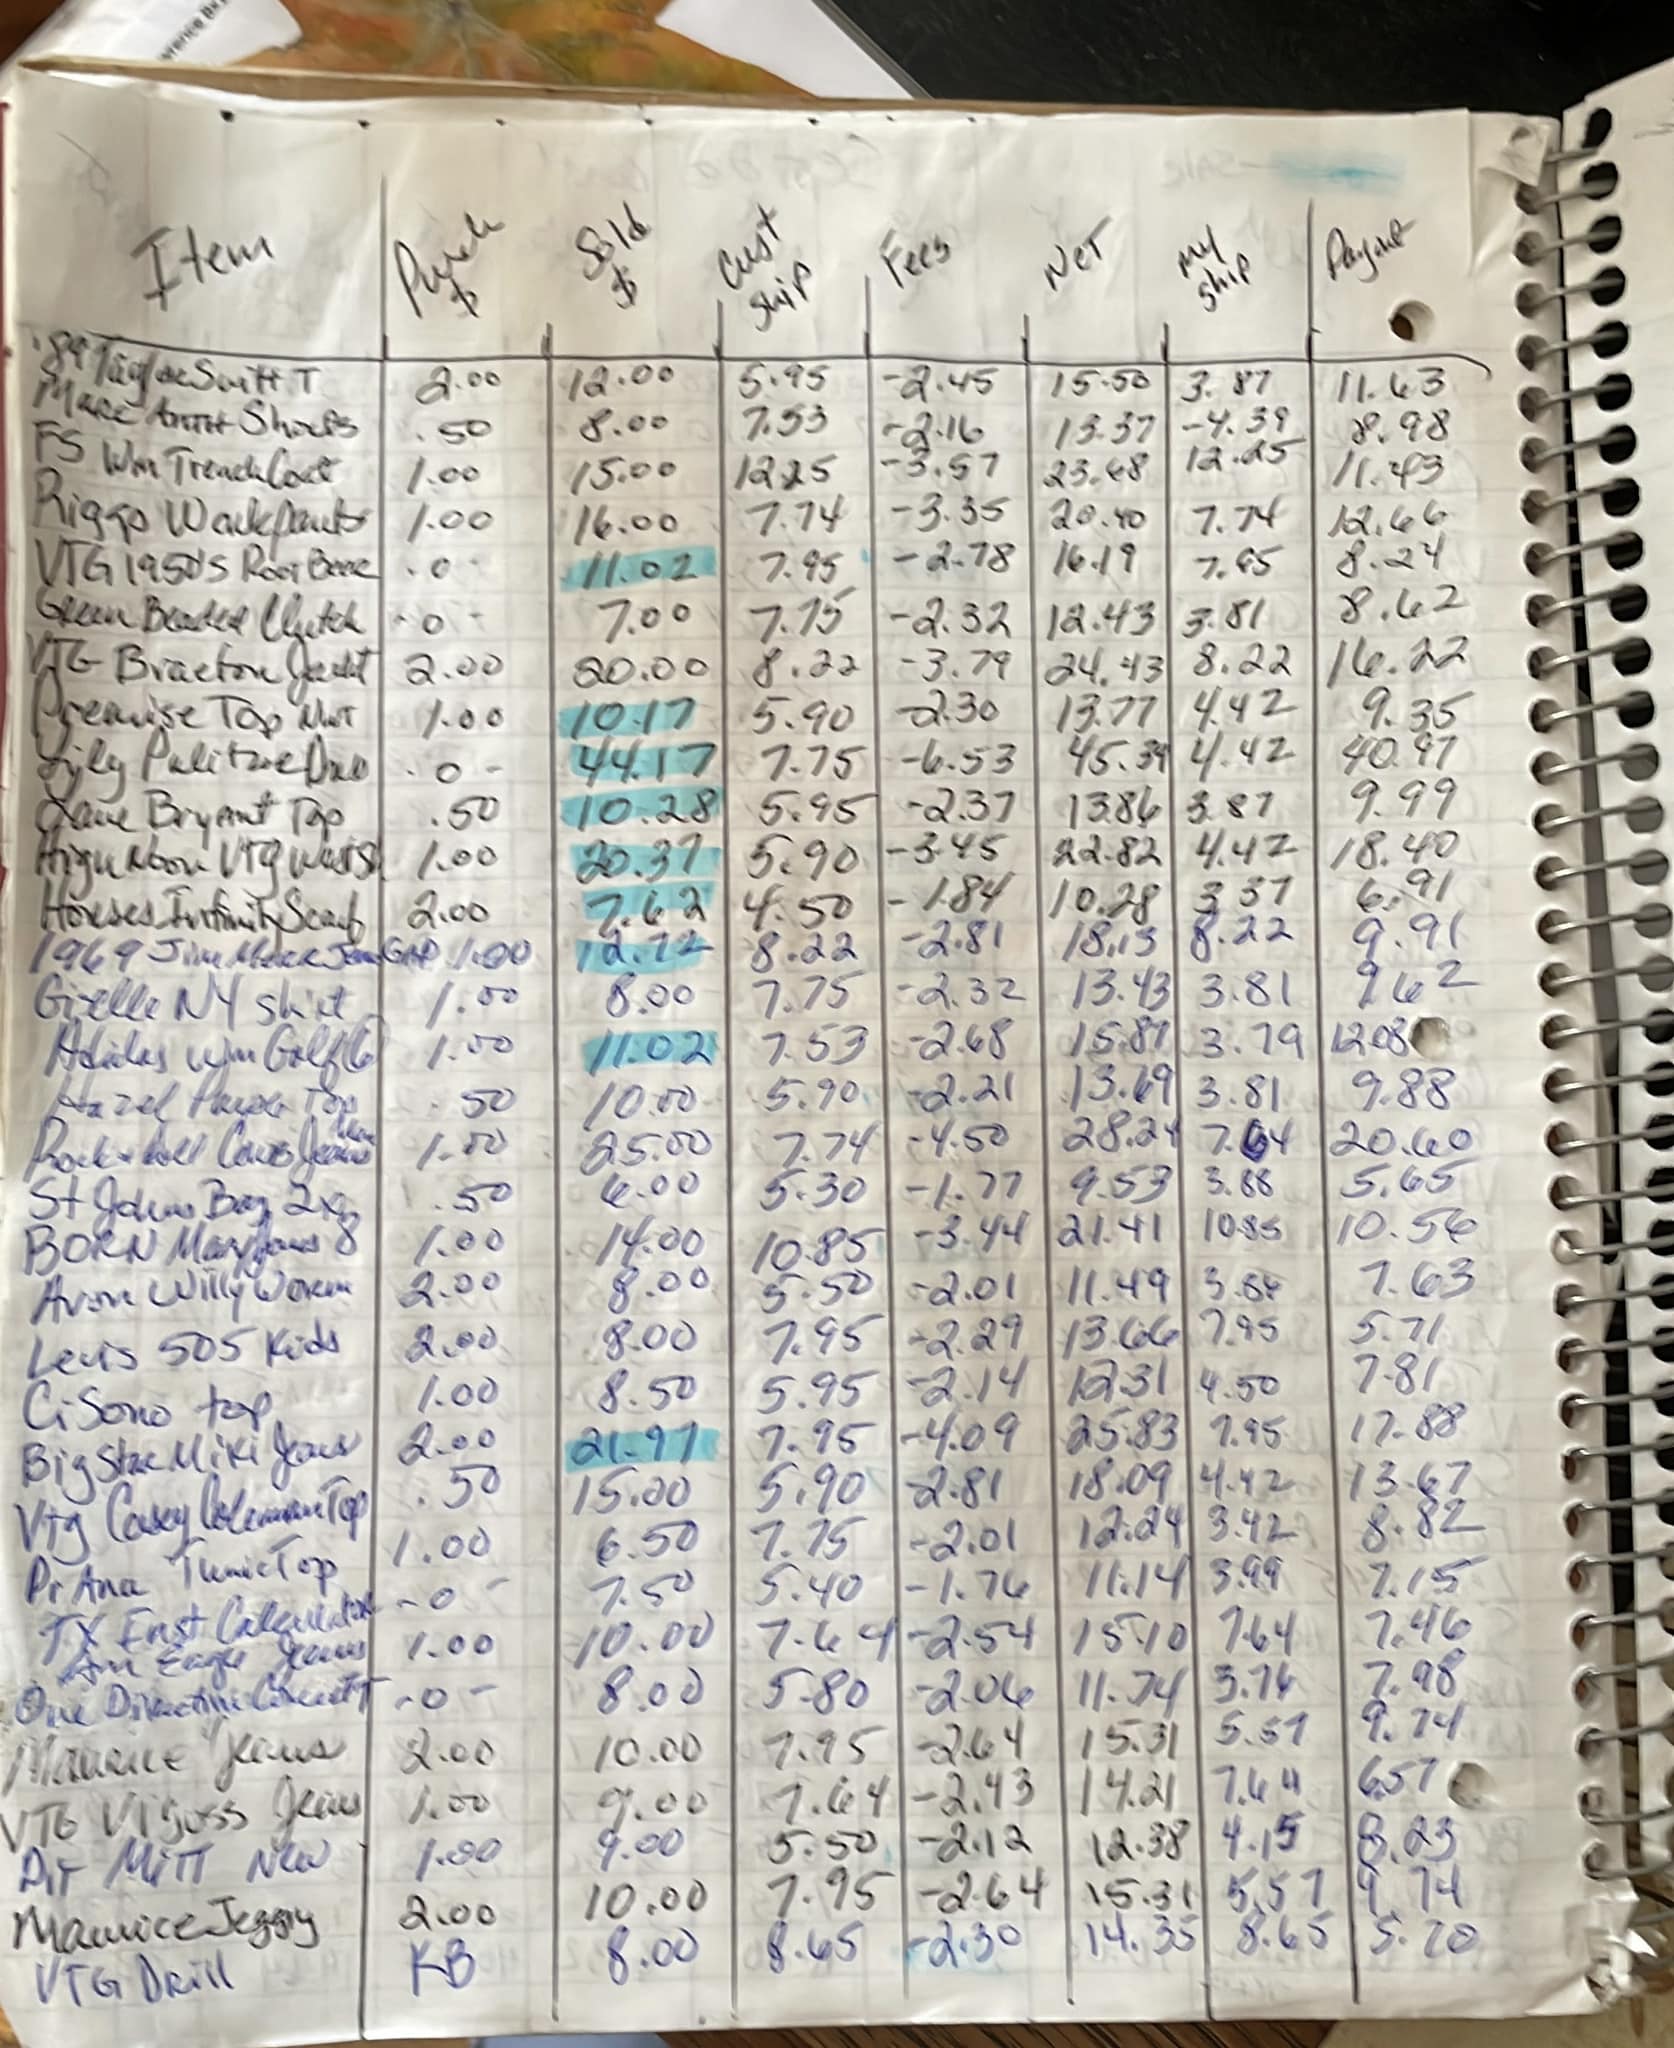 Item Purch $ Sold $ Cust ship Fees Net my ship Payout
'89 Taylor Swift T 2.00 12.00 5.95 -2.45 15.50 3.87 11.63
Marc Shorts .50 8.00 7.53 -2.16 13.37 -4.39 8.98
FS Wm Trench Coat 1.00 15.00 12.25 -3.57 23.68 12.25 11.43
Riggs Workpants 1.00 16.00 7.74 -3.35 20.40 7.74 12.66
VTG 1950's Root Beer .0 11.02 7.95 -2.78 16.19 7.95 8.24
Green Beaded Clutch -0- 7.00 7.75 -2.32 12.43 3.81 8.62
VTG Braeton Jackt 2.00 20.00 8.22 -3.79 24.43 8.22 16.22
Premise Top NWT 1.00 10.17 5.90 -2.30 13.77 4.42 9.35
Lily Pulitzer Dress .0- 44.17 7.75 -6.53 45.39 4.42 40.97
Lane Bryant Top .50 10.28 5.95 -2.37 13.86 3.87 9.99
High Noon VTG 1.00 20.37 5.90 -3.45 22.82 4.42 18.40
Horses Infinity Scarf 2.00 7.62 4.50 -1.84 10.28 3.37 6.91
1969 Jean GAP 1.00 12.72 8.22 -2.81 18.13 8.22 9.91
Giselle NY shirt 1.00 8.00 7.75 -2.32 13.43 3.81 9.62
Adidas Wm Golf 1.00 11.02 7.53 -2.68 15.87 3.79 12.08
Hazel Top .50 10.00 5.90 -2.21 13.69 3.81 9.88
Rock & Roll Cow Jeans Men 1.00 25.00 7.74 -4.50 28.24 7.64 20.60
St Johns Bay 2x .50 6.00 5.30 -1.77 9.53 3.88 5.65
BORN Mary Janes 8 1.00 14.00 10.85 -3.44 21.41 10.85 10.56
Avon Willy Worm 2.00 8.00 5.50 -2.01 11.49 3.86 7.63
Levis 505 Kids 2.00 8.00 7.95 -2.29 13.66 7.95 5.71
Ci Sono top 1.00 8.50 5.95 -2.14 12.31 4.50 7.81
Big Star Miki Jeans 2.00 21.97 7.95 -4.09 25.83 7.95 17.88
Vtg Casey Coleman Top .50 15.00 5.90 -2.81 18.09 4.42 13.67
PrAna Tunic Top 1.00 6.50 7.75 -2.01 12.24 3.42 8.82
TX Inst Calculator -0- 7.50 5.40 -1.76 11.14 3.99 7.15
Am Eagle Jeans 1.00 10.00 7.64 -2.54 15.10 7.64 7.46
One Direction Concert T -0- 8.00 5.80 -2.06 11.74 3.76 7.98
Maurice Jeans 2.00 10.00 7.95 -2.64 15.31 5.57 9.74
VTG Vigoss Jeans 1.00 9.00 7.64 -2.43 14.21 7.64 6.57
Mitt New 1.00 9.00 5.50 -2.12 12.38 4.15 8.23
Maurice Jeggy 2.00 10.00 7.95 -2.64 15.31 5.57 9.74
VTG Drill KB 8.00 8.65 -2.30 14.35 8.65 5.70